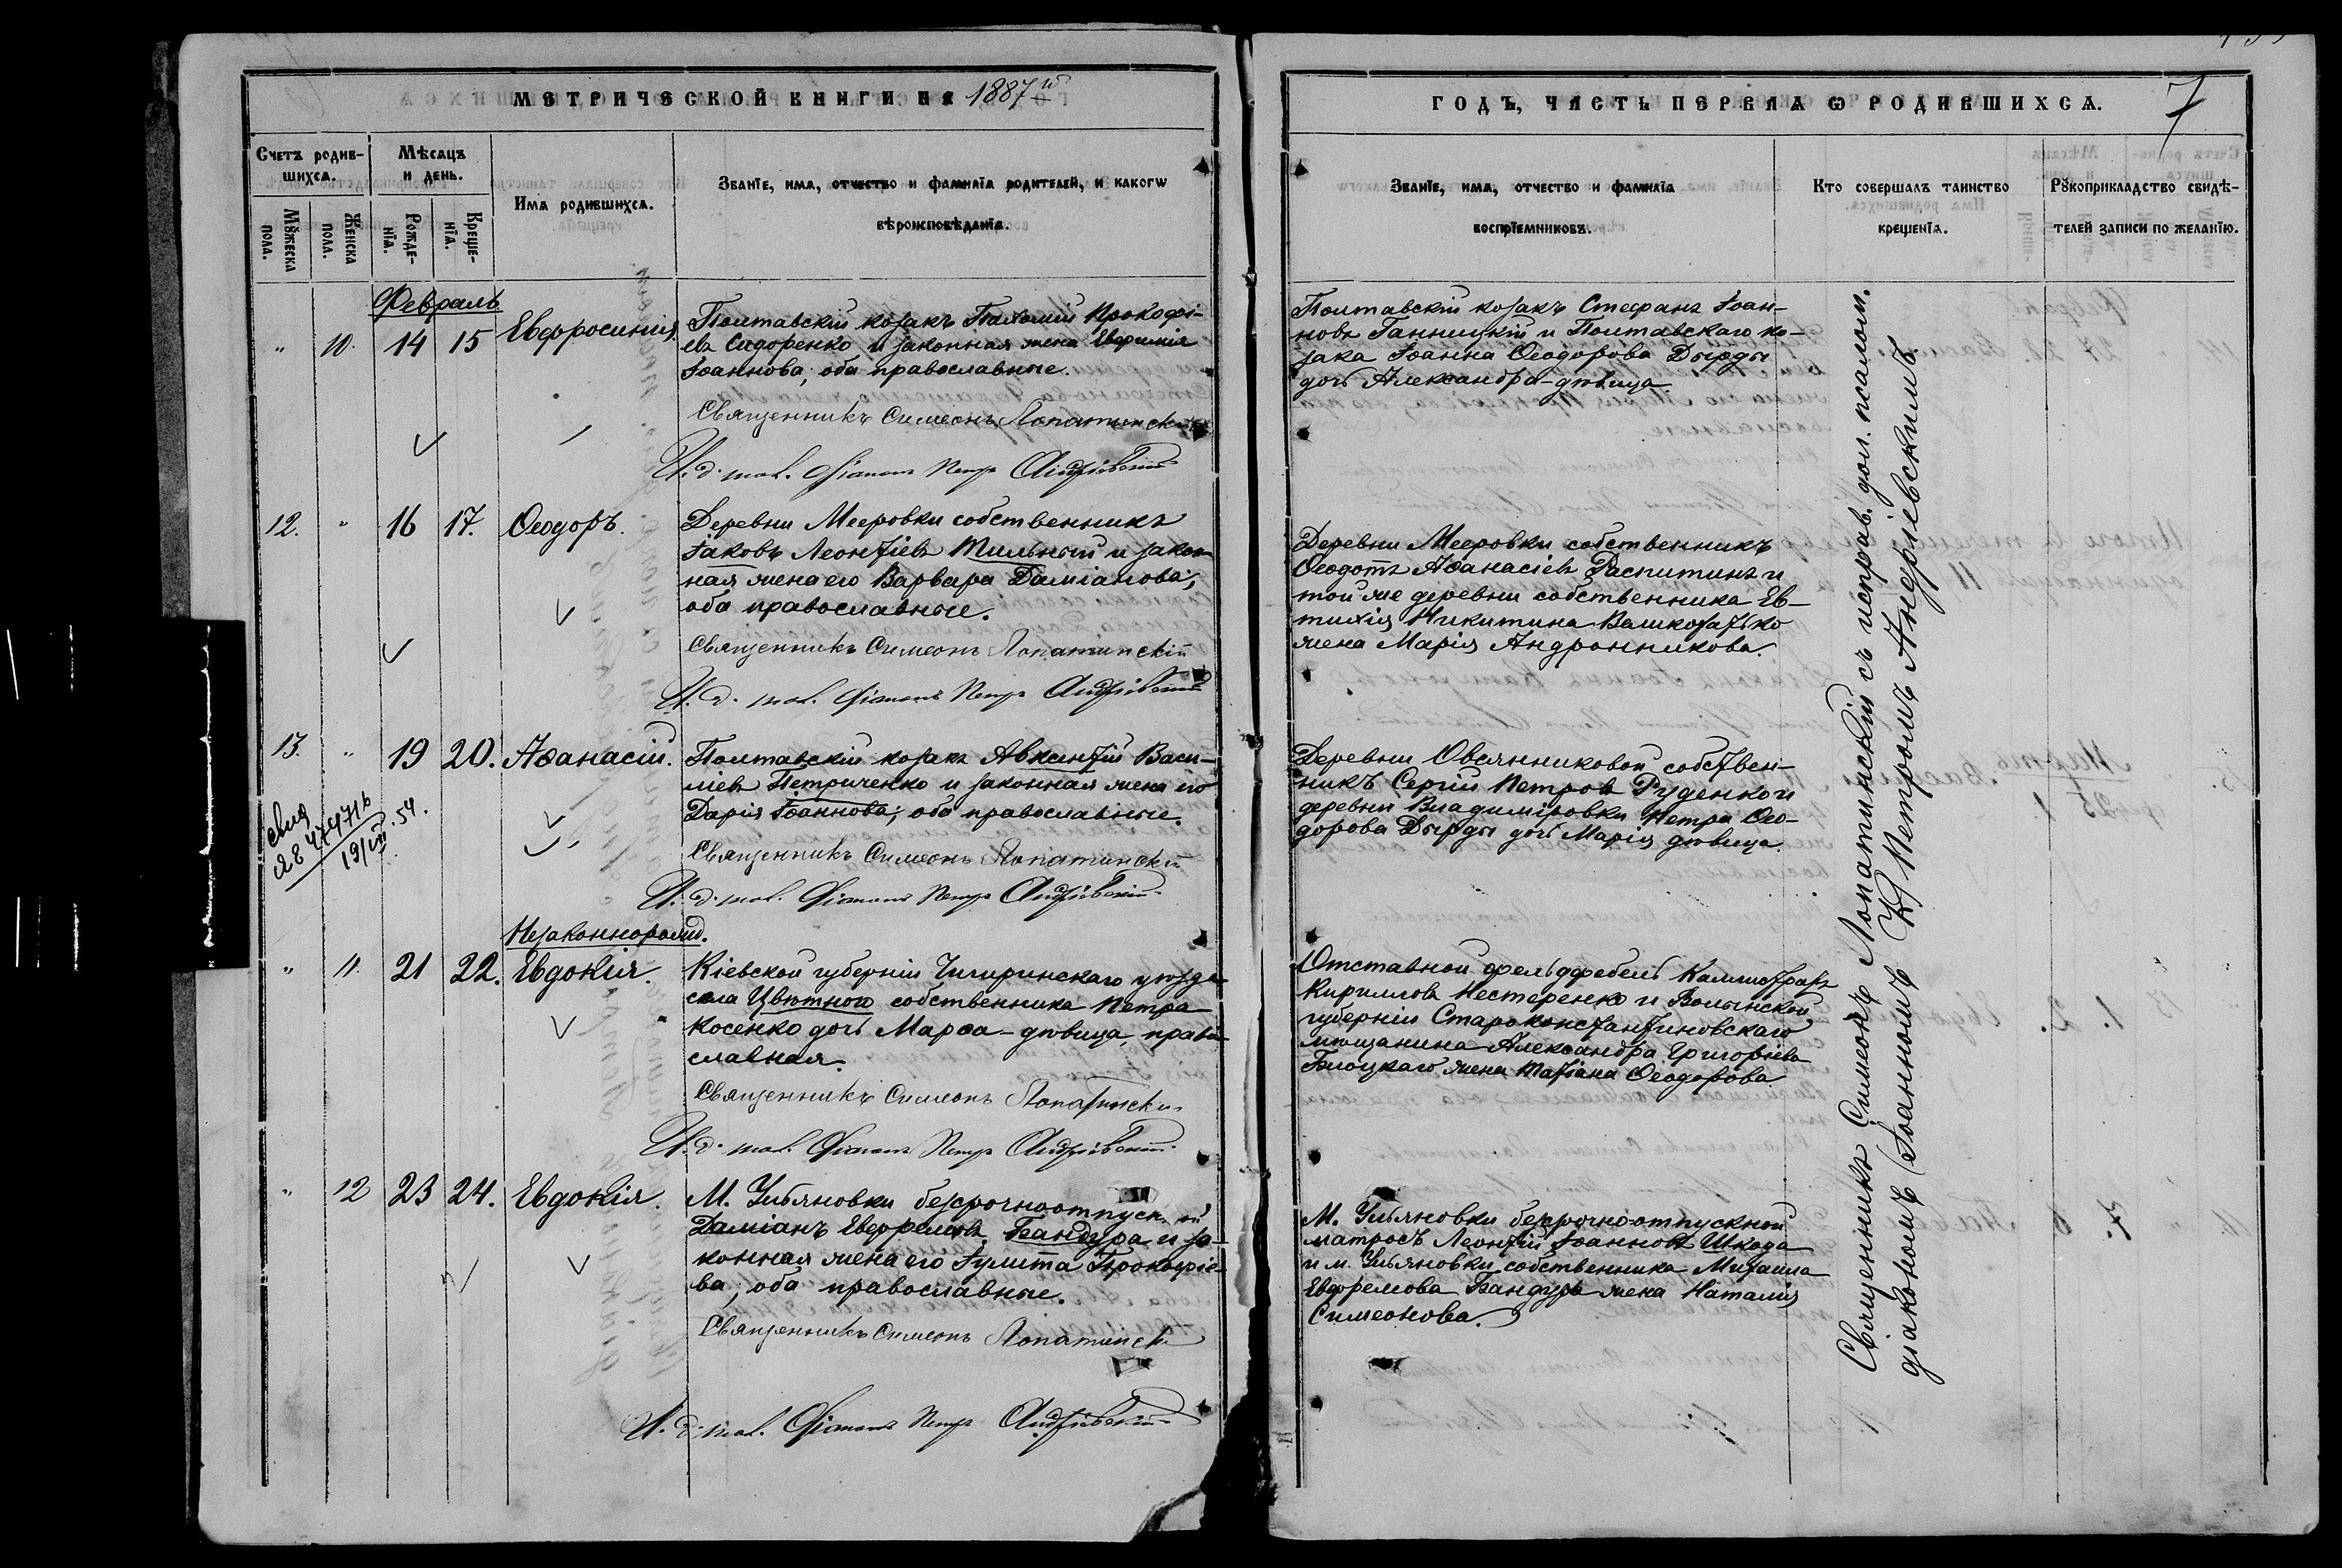 МЕТРИЧЕСКОЙ КНИГИ НА 1887й
Счетъ родив-
шихся.
Мѣсяцъ
и день.
Имя родившихся.
Званїе, имя, отчество и фамилїя родителей, и какогѡ
вѣроисповѣданїя.
Мꙋжеска
пола.
Женска
пола.
Рожде-
нїя.
Креще-
нїя.
Февраль
" 10. 14 15 Евфросинія
Полтавскій козакъ Пахомій Прокофі-
евъ Сидоренко и законная жена Евфимія
Іоаннова; оба православные.
Священникъ Симеонъ Лопатинскій
И. д. псал. Діаконъ Петръ Андріевскій
12. " 16 17. Ѳеодоръ.
Деревни Мееровки собственникъ
Іаковъ Леонтіевъ Тильный и закон-
ная жена его Варвара Даміанова;
оба православные.
Священникъ Симеонъ Лопатинскій
И. д. псал. Діаконъ Петръ Андріевскій
13. " 19 20. Аѳанасій.
Полтавскій козакъ Авксентій Васи-
ліевъ Петриченко и законная жена его
Дарія Іоаннова; оба православные.
19/VIII.54.
Священникъ Симеонъ Лопатинскій
И. д. псал. Діаконъ Петръ Андріевскій
Незаконнорожд.
" 11. 21 22. Евдокія.
Кіевской губерніи Чигиринскаго уѣзда
села Цвѣтного собственника Петра
Косенко дочь Марѳа-дѣвица, право-
славная.
Священникъ Симеонъ Лопатинскій
И. д. псал. Діаконъ Петръ Андріевскій
" 12 23 24. Евдокія.
М. Ульяновки безсрочноотпуск. ой
Даміанъ Евфремовъ Бандура и за-
конная жена его Іулитта Прокофіе-
ва; оба православные.
Священникъ Симеонъ Лопатинск
И. д. псал. Діаконъ Петръ Андріевскій
ГОДЪ, ЧАСТЬ ПЕРВАЯ Ѡ РОДИВШИХСЯ.
7
Званїе, имя, отчество и фамилїя
воспрїемниковъ.
Кто совершалъ таинство
крещенїя.
Рꙋкоприкладство свидѣ-
телей записи по желанїю.
Полтавскій козакъ Стефанъ Іоан-
новъ Ганницкій и Полтавскаго ко-
зака Іоанна Ѳеодорова Дырды
дочь Александра-дѣвица
Деревни Мееровки собственникъ
Ѳеодотъ Аѳанасіевъ Распитинъ и
той же деревни собственника Ев-
тихія Никитина Велико
жена Марія Андронникова.
Деревни Овсянниковой собствен-
никъ Сергій Петровъ Руденко и
деревни Владиміровки Петра Ѳео-
дорова Дырды дочь Марія дѣвица.
Отставной фельдфебель Каллистратъ
Кирилловъ Нестеренко и Волынской
губерніи Староконстантиновскаго
мѣщанина Александра Григоріева
жена Татіана Ѳеодорова
М. Ульяновки безсрочно-отпускной
матросъ Леонтій Іоанновъ Шкода
и м. Ульяновки собственника Михаила
Евфремова Бандуры жена Наталія
Симеонова.
Священникъ Симеонъ Лопатинскій съ исправ. дол. псалом.
діакономъ Петромъ Андріевскимъ.